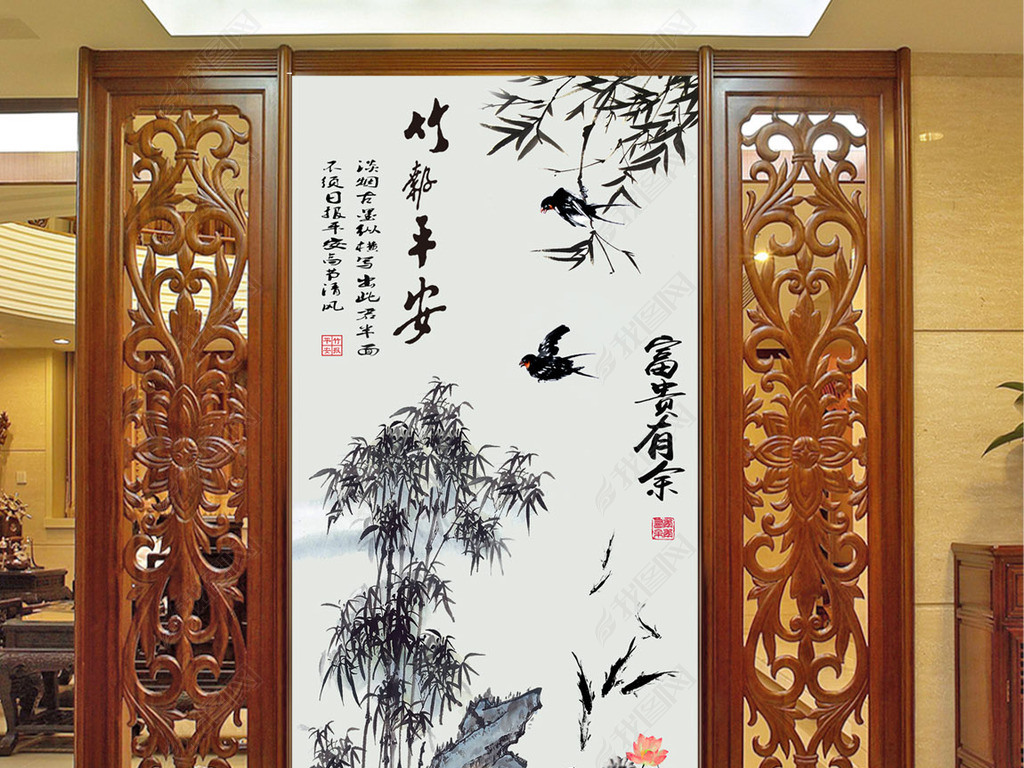 竹報平安
淡烟古墨纵横写出此君半面
不须日报平安高节清风
竹报
平安
富贵有余
我图网